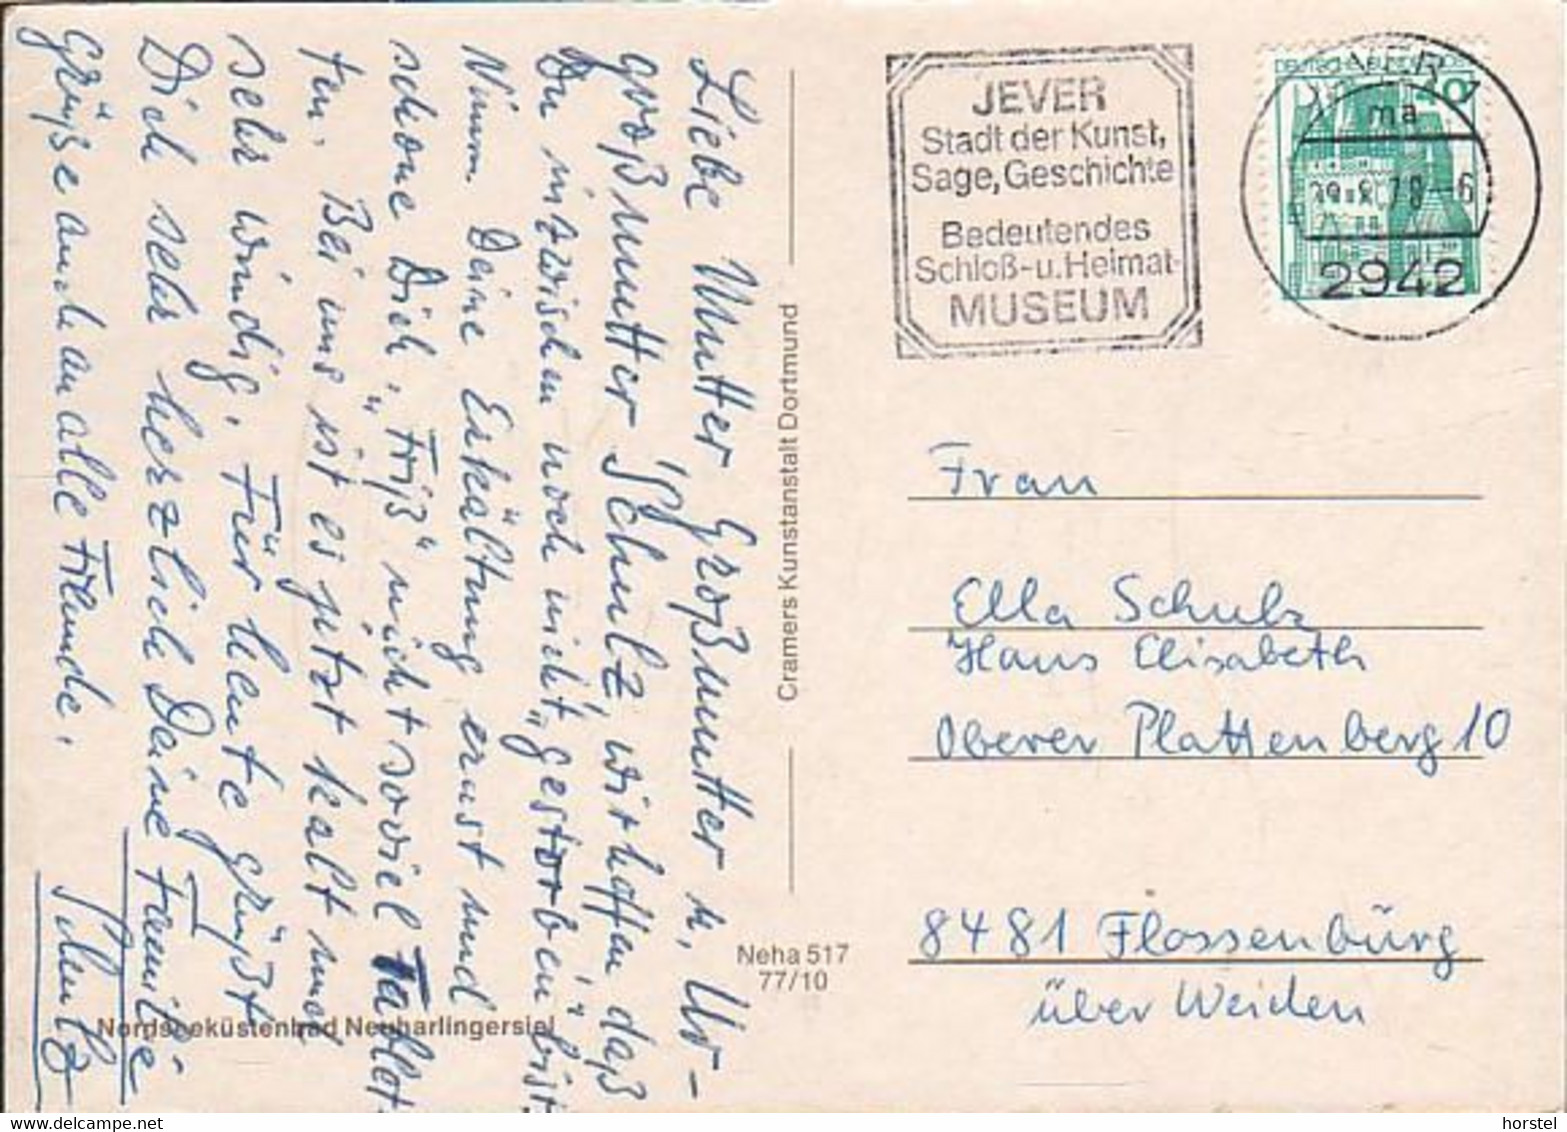 Liebe Mutter, Großmutter u, Ur-
großmutter "Schulz", wir hoffen daß
Du inzwischen noch nicht "gestorben" bist.
Nimm Deine Erkältung ernst und
schone Dich, "friß" nicht soviel Tablet-
ten. Bei uns ist es jetzt kalt und
sehr windig. Für heute grüßt
Dich sehr herzlich Deine Familie
Schulz
Grüße auch an alle Freunde.
Nordseeküstenbad Neuharlingersiel
Cramers Kunstanstalt Dortmund
Neha 517
77/10
JEVER
Stadt der Kunst,
Sage, Geschichte
Bedeutendes
Schloß-u. Heimat-
MUSEUM
DEUTSCHE BUNDESPOST
JEVER 1
ma
78-6
2942
Frau
Ella Schulz
Haus Elisabeth
Oberer Plattenberg 10
8481 Flossenbürg
über Weiden
horster - delcampe.net